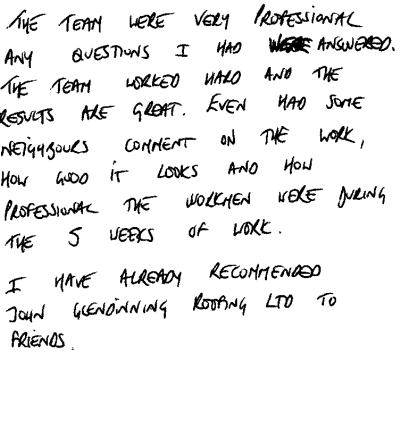 THE TEAM WERE VERY PROFESSIONAL
ANY QUESTIONS I HAD WERE ANSWERED.
THE TEAM WORKED HARD AND THE
RESULTS ARE GREAT. EVEN HAD SOME
NEIGHBOURS COMMENT ON THE WORK,
HOW GOOD IT LOOKS AND HOW
PROFESSIONAL THE WORKMEN WERE DURING
THE 5 WEEKS OF WORK.
I HAVE ALREADY RECOMMENDED
JOHN GLENDINNING ROOFING LTD TO
FRIENDS.